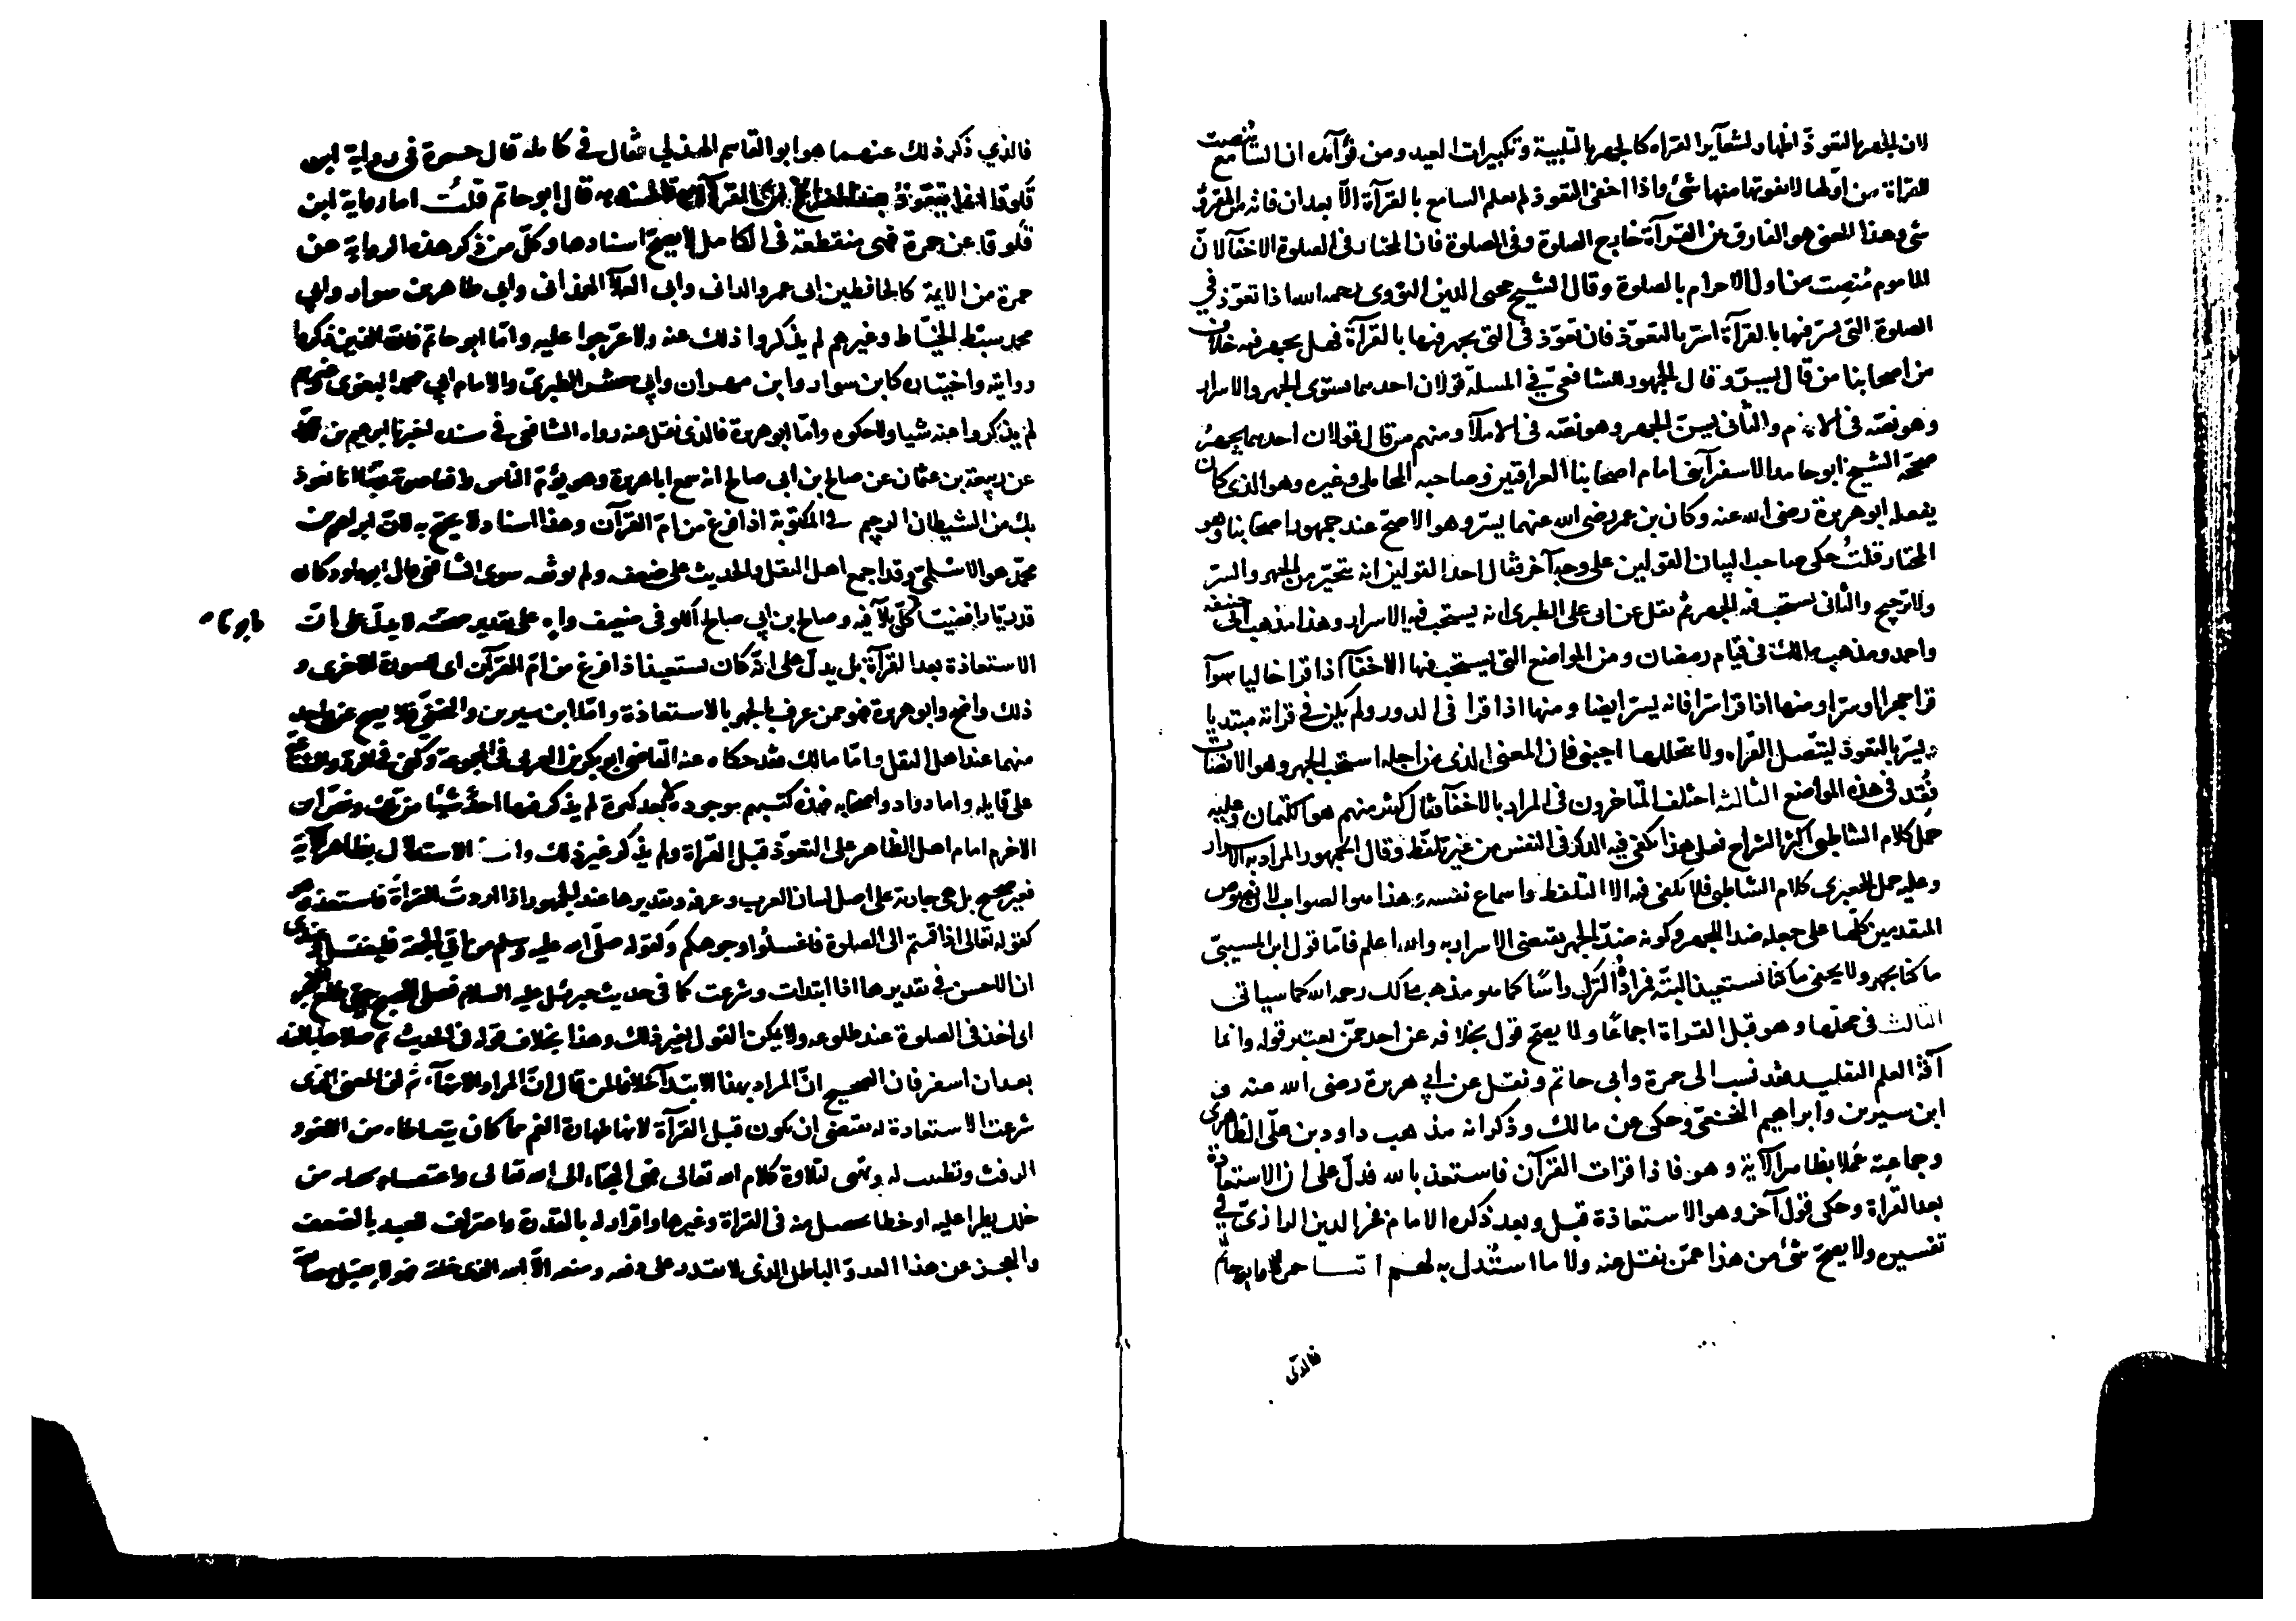 لان الجهر بالتعوذ اظهار لشعاير القراة كالجهر بالتلبية وتكبيرات العيد ومن فوآئده ان السامع ينصت
للقراة من اولها لا يفوتها منها شئ واذا اخفى التعوذ لم يعلم السامع بالقرآة الا بعد ان فاته من المقروُ
شئ وهذا المعنى هو الفارق بين القرآة خارج الصلوة وفى الصلوة فان المختار فى الصلوة الاخفآ لانّ
الماموم مُنصت من اول الاحرام بالصلوة وقال الشيخ محى الدين النووى رحمه الله اذا تعوّذ في
الصلوة التى يسرّ فيها بالقرآة اسرّ بالتعوّذ فان تعوّذ فى التى يجهر فيها بالقرآة فهل يجهر فيه خلاف
من اصحابنا من قال يسرّ وقال الجمهور للشافعيّ في المسلة قولان احدهما يستوى الجهر والاسرار
وهو نصّه فى الام والثانى يسنّ الجهر وهو نصّه فى الاملآ ومنهم من قال قولان احدهما يجهرُ
صححّه الشيخ ابو حامد الاسفرآينى امام اصحابنا العراقيين وصاحبه المحاملى وغيره وهو الذى كان
يفعله ابو هريرة رضى الله عنه وكان بن عمر رضى الله عنهما يسرّ وهو الاصحّ عند جمهور اصحابنا وهو
المختار قلتُ حكى صاحب البيان القولين على وجه آخر فقال احد القولين انه يتخيّر بين الجهر والسرّ
ولا ترجيح والثانى يستحب فيه الجهر ثم نقل عن ابى على الطبرى انه يستحب فيه الاسرار وهذا مذهب ابى حنيفه
واحمد ومذهب مالك فى قيام رمضان ومن المواضع التى يستحب فيها الاخفآ اذا قرا خاليا سوآ
قرا جهرا او سرّا ومنها اذا قرا سرّا فانه يسرّ ايضا ومنها اذا قرا فى الدور ولم يكن في قرآته مبتديا
يسرّ بالتعوذ ليتّصل القرآه ولا يتخللها اجنبى فان المعنى الذى من اجله استحب الجهر وهو الانصات
فُقد فى هذه المواضع الثالث اختلف المتاخرون فى المراد بالاخفآ فقال كثير منهم هو الكتمان وعليه
حَمل كلام الشاطبى اكثر الشراح فعلى هذا يكفى فيه الذكر فى النفس من غير تلفّظ وقال الجمهور المراد به الاسرار
وعليه حمل الجعبرى كلام الشاطبى فلا يكفى فيه الا التلفظ واسماع نفسه وهذا هو الصواب لان نصوص
المتقدمين كلّها على جعله ضد الجهر وكونه ضدّ الجهر يقتضى الاسرار به والله اعلم فامّا قول ابن المسيبيّ
ما كنا نجهر ولا نخفى ما كنا نستعيذ البتّه فمرادُه الترك راسًا كما هو مذهب مالك رحمه الله كما سياتى
الثالث فى محلّها وهو قبل القراة اجماعًا ولا يصحّ قول بخلافه عن احد ممّن يعتبر قوله وانما
آفة العلم التقليد فقد نسب الى حمزة وابى حاتم ونقل عن ابي هريرة رضى الله عنه و
ابن سيرين وابراهيم النخعىّ وحكى عن مالك وذكرانه مذهب داود بن علىّ الظاهرى
وجماعته عملا بظاهر الآية وهو فاذا قرات القرآن فاستعذ بالله فدلّ على ان الاستعاذه
بعد القراة وحكى قول آخر وهو الاستعاذة قبل وبعد ذكره الامام فخر الدين الرازىّ في
تفسيره ولا يصحّ شئ من هذا عمّن نقل عنه ولا ما استُدل به لهم اما حمزة وابو حاتم
فالذى
فالذي ذكر ذلك عنهما هو ابو القاسم الهذلي فقال في كامله قال حمزة فى رواية ابن
قَلوقا انما يتعوّذُ بعد الفراغ من القرآن قال ابو حاتم قلتُ اما رواية ابن
قلوقا عن حمزة فهى منقطعة فى الكامل لا يصحّ اسنادها وكلّ من ذكر هذه الرواية عن
حمزة من الايمة كالحافظين ابى عمرو الدانى وابى العلآ الهمذانى وابى طاهر بن سوار وابي
محمد سبط الخيّاط وغيرهم لم يذكروا ذلك عنه ولا عرّجوا عليه وامّا ابو حاتم فانّ الذين ذكروا
روايته واختياره كابن سوار وابن مهران وابي معشر الطبرىّ والامام ابي محمد البغوى وغيرهم
لم يذكروا عنه شيا ولا حكوه وامّا ابو هريرة فالذى نقل عنه رواه الشافعى في مسنده اخبرنا ابرهيم بن محمد
عن ربيعة بن عثمان عن صالح بن ابى صالح انه سمع ابا هريرة وهو يؤمّ الناس رافعا صوته ربّنا انا نعوذ
بك من الشيطان الرجيم في المكتوبة اذا فرغ من امّ القرآن وهذا اسناد لا يحتج به لانّ ابراهيم بن
محمّد هو الاسلمّى وقد اجمع اهل النقل والحديث على ضعفه ولم يوثقه سوى الشافعى قال ابو داود كان
قدريّا رافضيّا كلّ بلآ فيه وصالح بن ابي صالح الكوفى ضعيف واهٍ وعلى تقدير صحته لا يدلّ على انّ
الاستعاذة بعد القرآة بل يدلّ على انّه كان يستعيذ اذا فرغ من امّ القرآن اى للسورة الاخرى و
ذلك واضح وابو هريرة فهو ممن عرف بالجهر بالاستعاذة وامّا ابن سيرين والنخعىّ فلا يصح عن احد
منهما عند اهل النقل وامّا مالك فقد حكاه عنه القاضى ابو بكر بن العربى فى المجموعة وكفى فى الردّ والشناعة
على قايله واما داود واصحابه فهذه كتبهم موجودة لا تعد كثرة لم يذكر فيها احدٌ شيئًا من ذلك ونصّ ابن
الاحزم امام اهل الظاهر على التعوّذ قبل القراة ولم يذكر غير ذلك وان الاستدلال بظاهر الآية
فغير صحيح بل هى جارية على اصل لسان العرب وعرفه وتقديرها عند الجمهور اذا اردتَ القراةَ فاستعذ وهو
كقوله تعالى اذا قمتم الى الصلوة فاغسلُوا وجوهكم وكقوله صلّى الله عليه وسلم من اتى الجمعة فليغتسل وعندى
ان الاحسن في تقديرها اذا ابتدات وشرعت كما فى حديث جبرئيل عليه السلام فصلى الصبح حين طلع الفجر
اى اخذ فى الصلوة عند طلوعه ولا يمكن القول بغير ذلك وهذا بخلاف قوله فى الحديث ثم صلاها بالغد
بعد ان اسفر فان الصحيح انّ المراد بهذا الابتدآ خلافا لمن قال انّ المراد الانتهآء ثم ان المعنى الذى
شرعت الاستعاذة له يقتضى ان يكون قبل القرآة لانها طهارة الفم مما كان يتعاطاه من اللغو و
الرفث وتطييب له وتهى لتلاوة كلام الله تعالى فهى التجاء الى الله تعالى واعتصام من
خلل يطرا عليه او خطا يحصل منه فى القراة وغيرها واقرار له بالقدرة واعتراف للعبد بالضعف
والعجز عن هذا العدوّ الباطن الذى لا يقدر على دفعه ومنعه الّا الله الذى خلقه فهو لا يقبل مصانعة